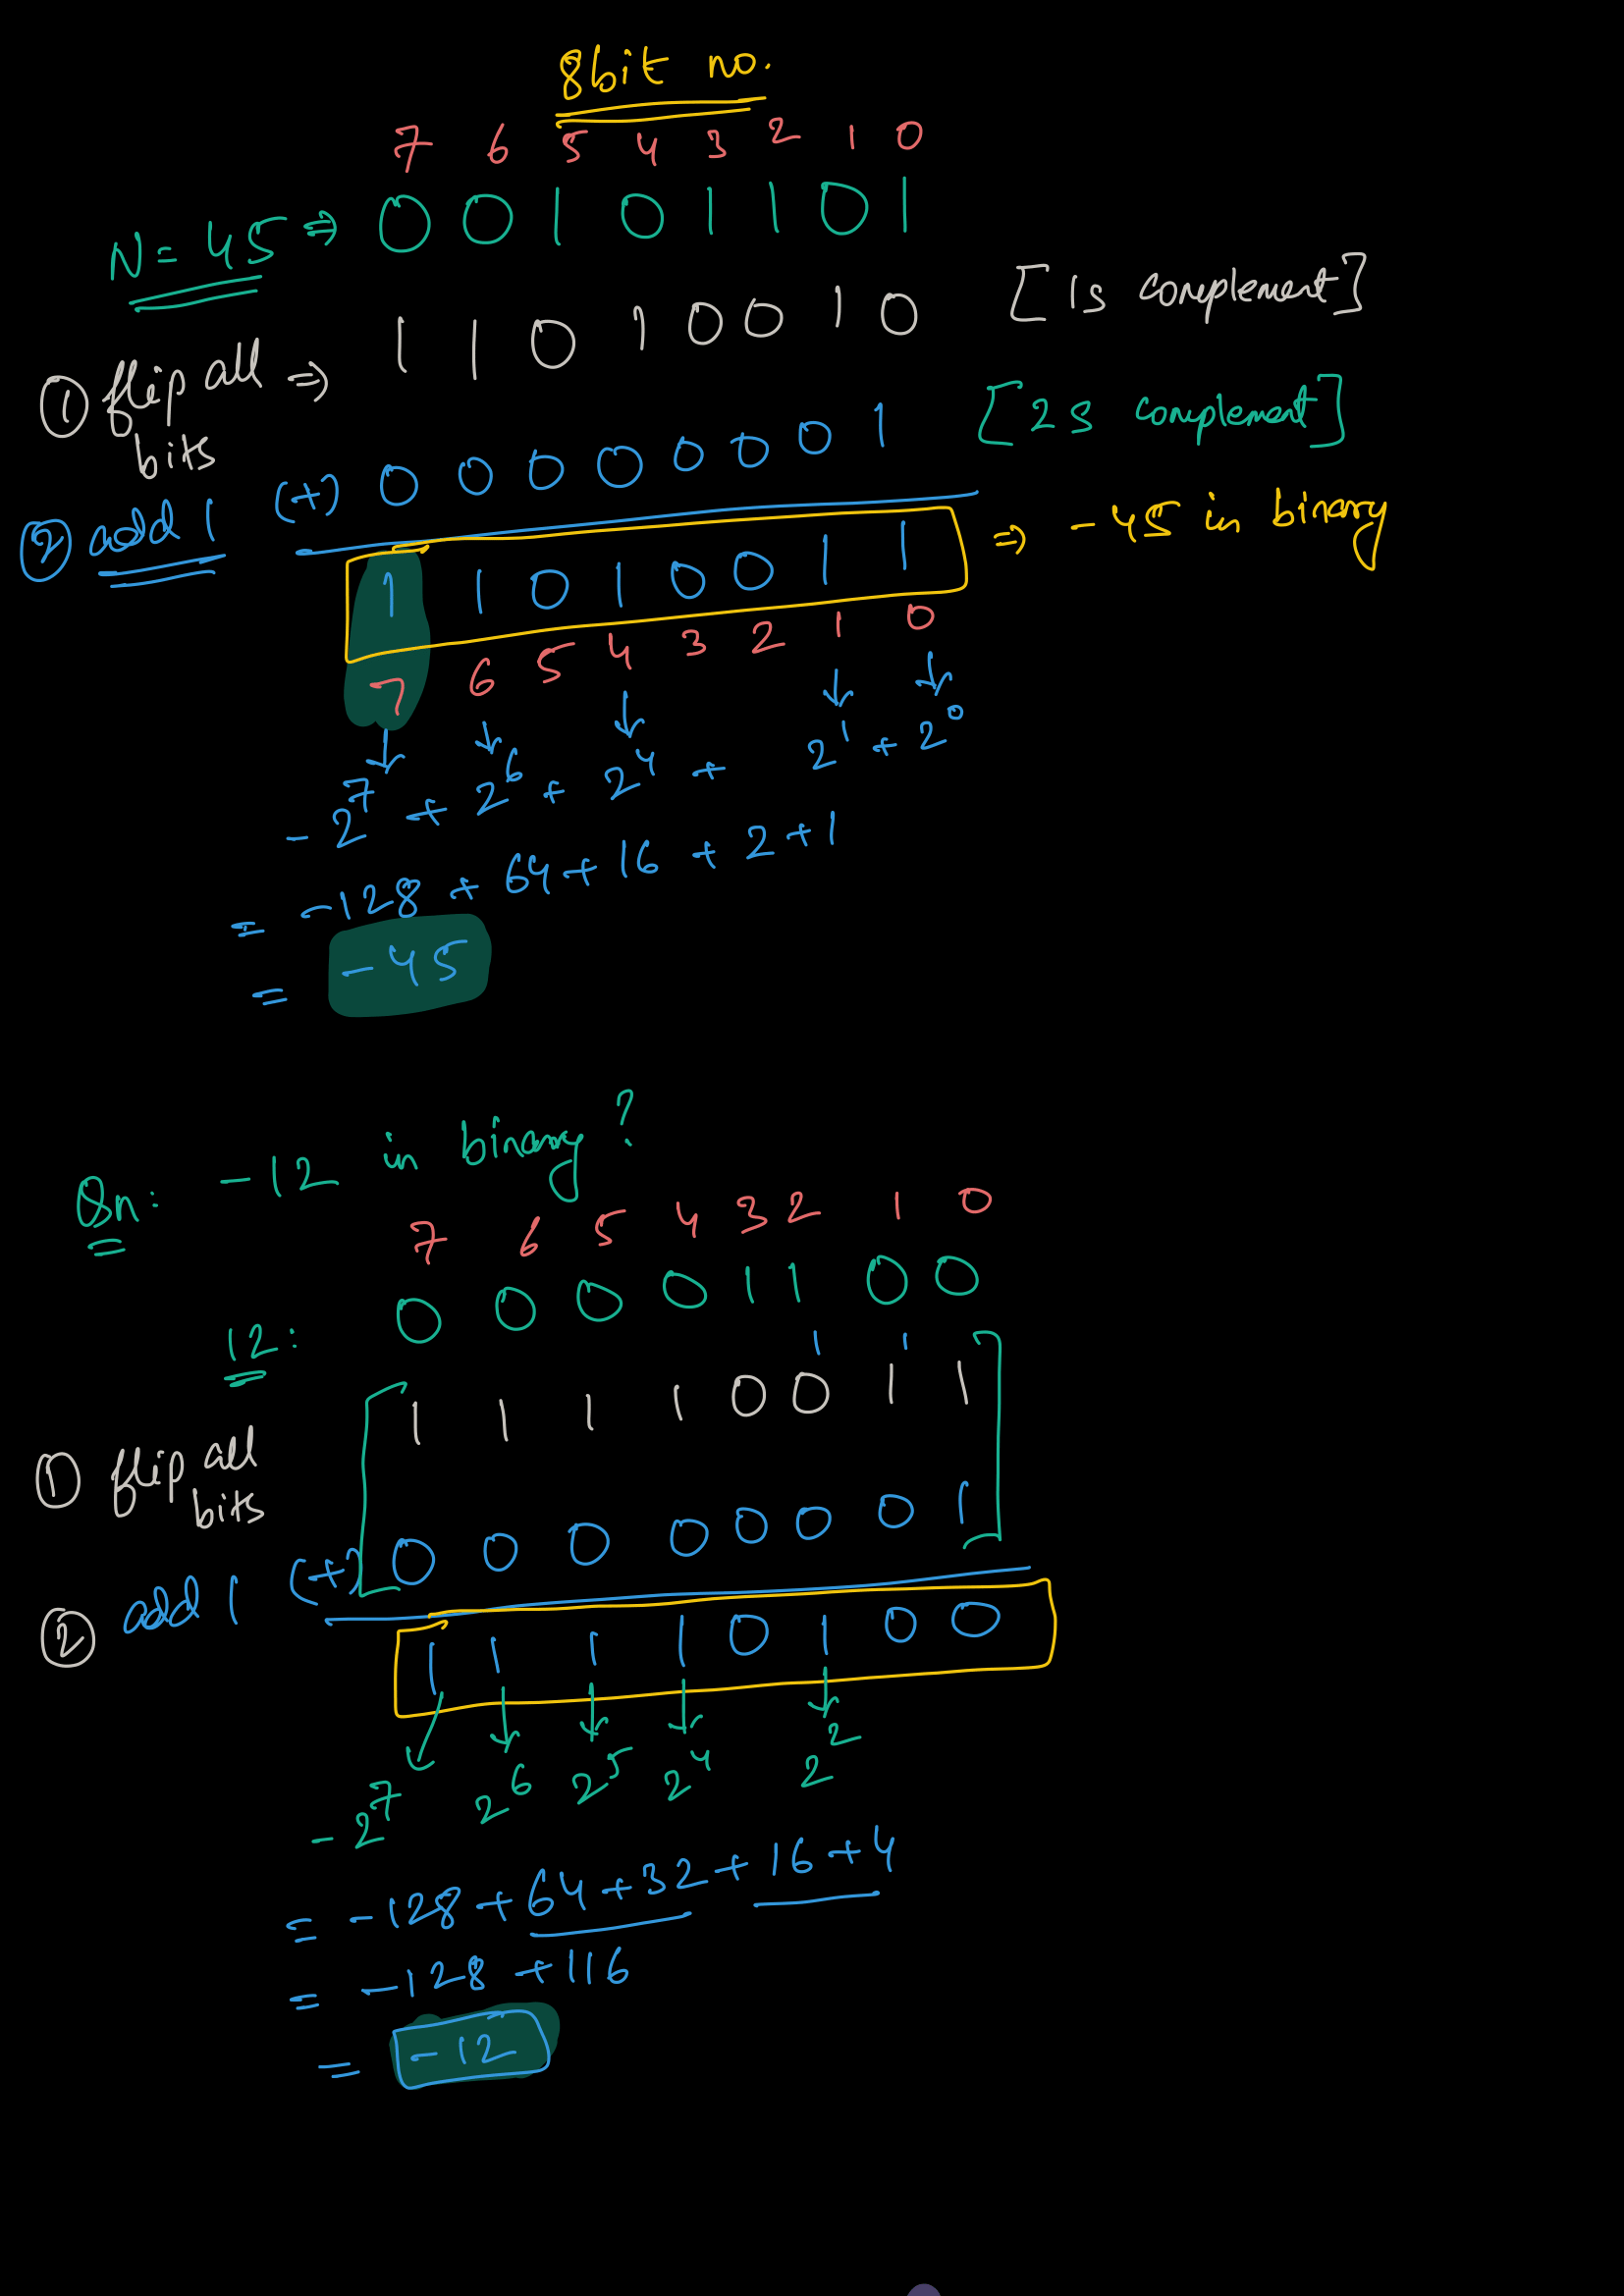 8bit no.
7 6 5 4 3 2 1 0
N = 45 ⇒ 0 0 1 0 1 1 0 1
① flip all bits ⇒ 1 1 0 1 0 0 1 0 [1s complement]
② add 1 (+) 0 0 0 0 0 0 0 1 [2s complement]
1 1 0 1 0 0 1 1 ⇒ -45 in binary
7 6 5 4 3 2 1 0
-2^7 + 2^6 + 2^4 + 2^1 + 2^0
= -128 + 64 + 16 + 2 + 1
= -45
Qn: -12 in binary?
7 6 5 4 3 2 1 0
12: 0 0 0 0 1 1 0 0
1 1
① flip all bits 1 1 1 1 0 0 1 1
② add 1 (+) 0 0 0 0 0 0 0 1
1 1 1 1 0 1 0 0
-2^7 2^6 2^5 2^4 2^2
= -128 + 64 + 32 + 16 + 4
= -128 + 116
= -12